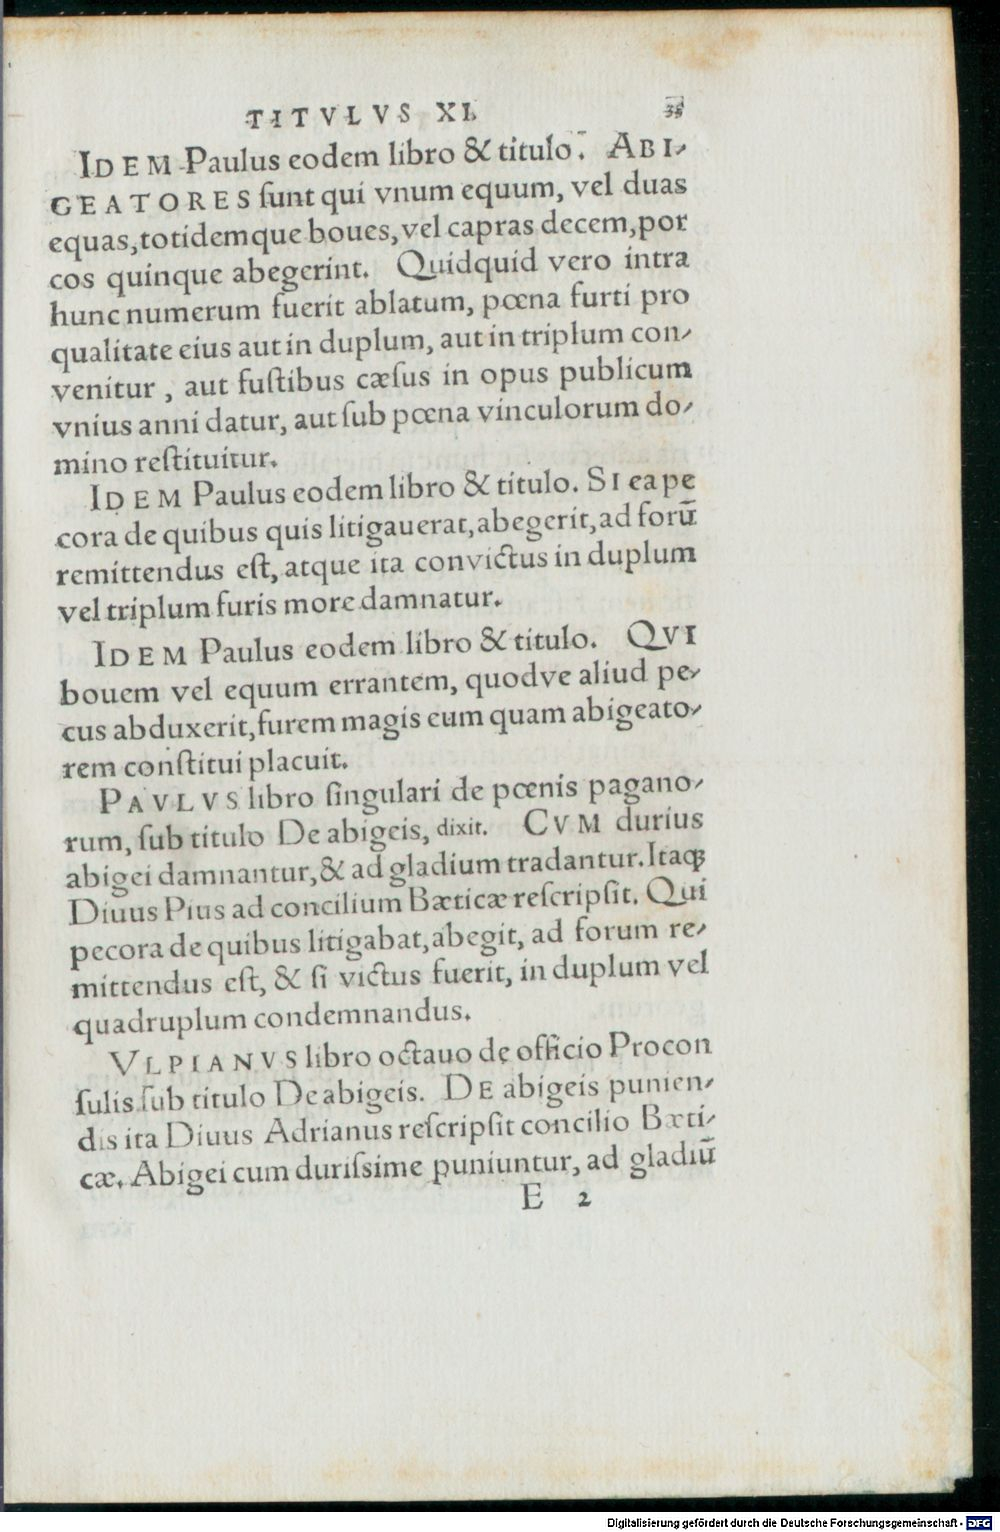 TITVLVS XI. 35
IDEM Paulus eodem libro & titulo. ABI-
GEATORES ſunt qui vnum equum, vel duas
equas, totidemque boues, vel capras decem, por
cos quinque abegerint. Quidquid vero intra
hunc numerum fuerit ablatum, pœna furti pro
qualitate eius aut in duplum, aut in triplum con-
venitur, aut fuſtibus cæſus in opus publicum
vnius anni datur, aut ſub pœna vinculorum do-
mino reſtituitur.
IDEM Paulus eodem libro & titulo. SI ea pe
cora de quibus quis litigauerat, abegerit, ad forū
remittendus eſt, atque ita convictus in duplum
vel triplum furis more damnatur.
IDEM Paulus eodem libro & titulo. QVI
bouem vel equum errantem, quodve aliud pe-
cus abduxerit, furem magis eum quam abigeato-
rem conſtitui placuit.
PAVLVS libro ſingulari de pœnis pagano-
rum, ſub titulo De abigeis, dixit. CVM durius
abigei damnantur, & ad gladium tradantur. Itaq;
Diuus Pius ad concilium Bæticæ reſcripſit. Qui
pecora de quibus litigabat, abegit, ad forum re-
mittendus eſt, & ſi victus fuerit, in duplum vel
quadruplum condemnandus.
VLPIANVS libro octauo de officio Procon
ſulis ſub titulo De abigeis. DE abigeis punien-
dis ita Diuus Adrianus reſcripſit concilio Bæti-
cæ. Abigei cum duriſsime puniuntur, ad gladiū
E 2
Digitalisierung gefördert durch die Deutsche Forschungsgemeinschaft - DFG